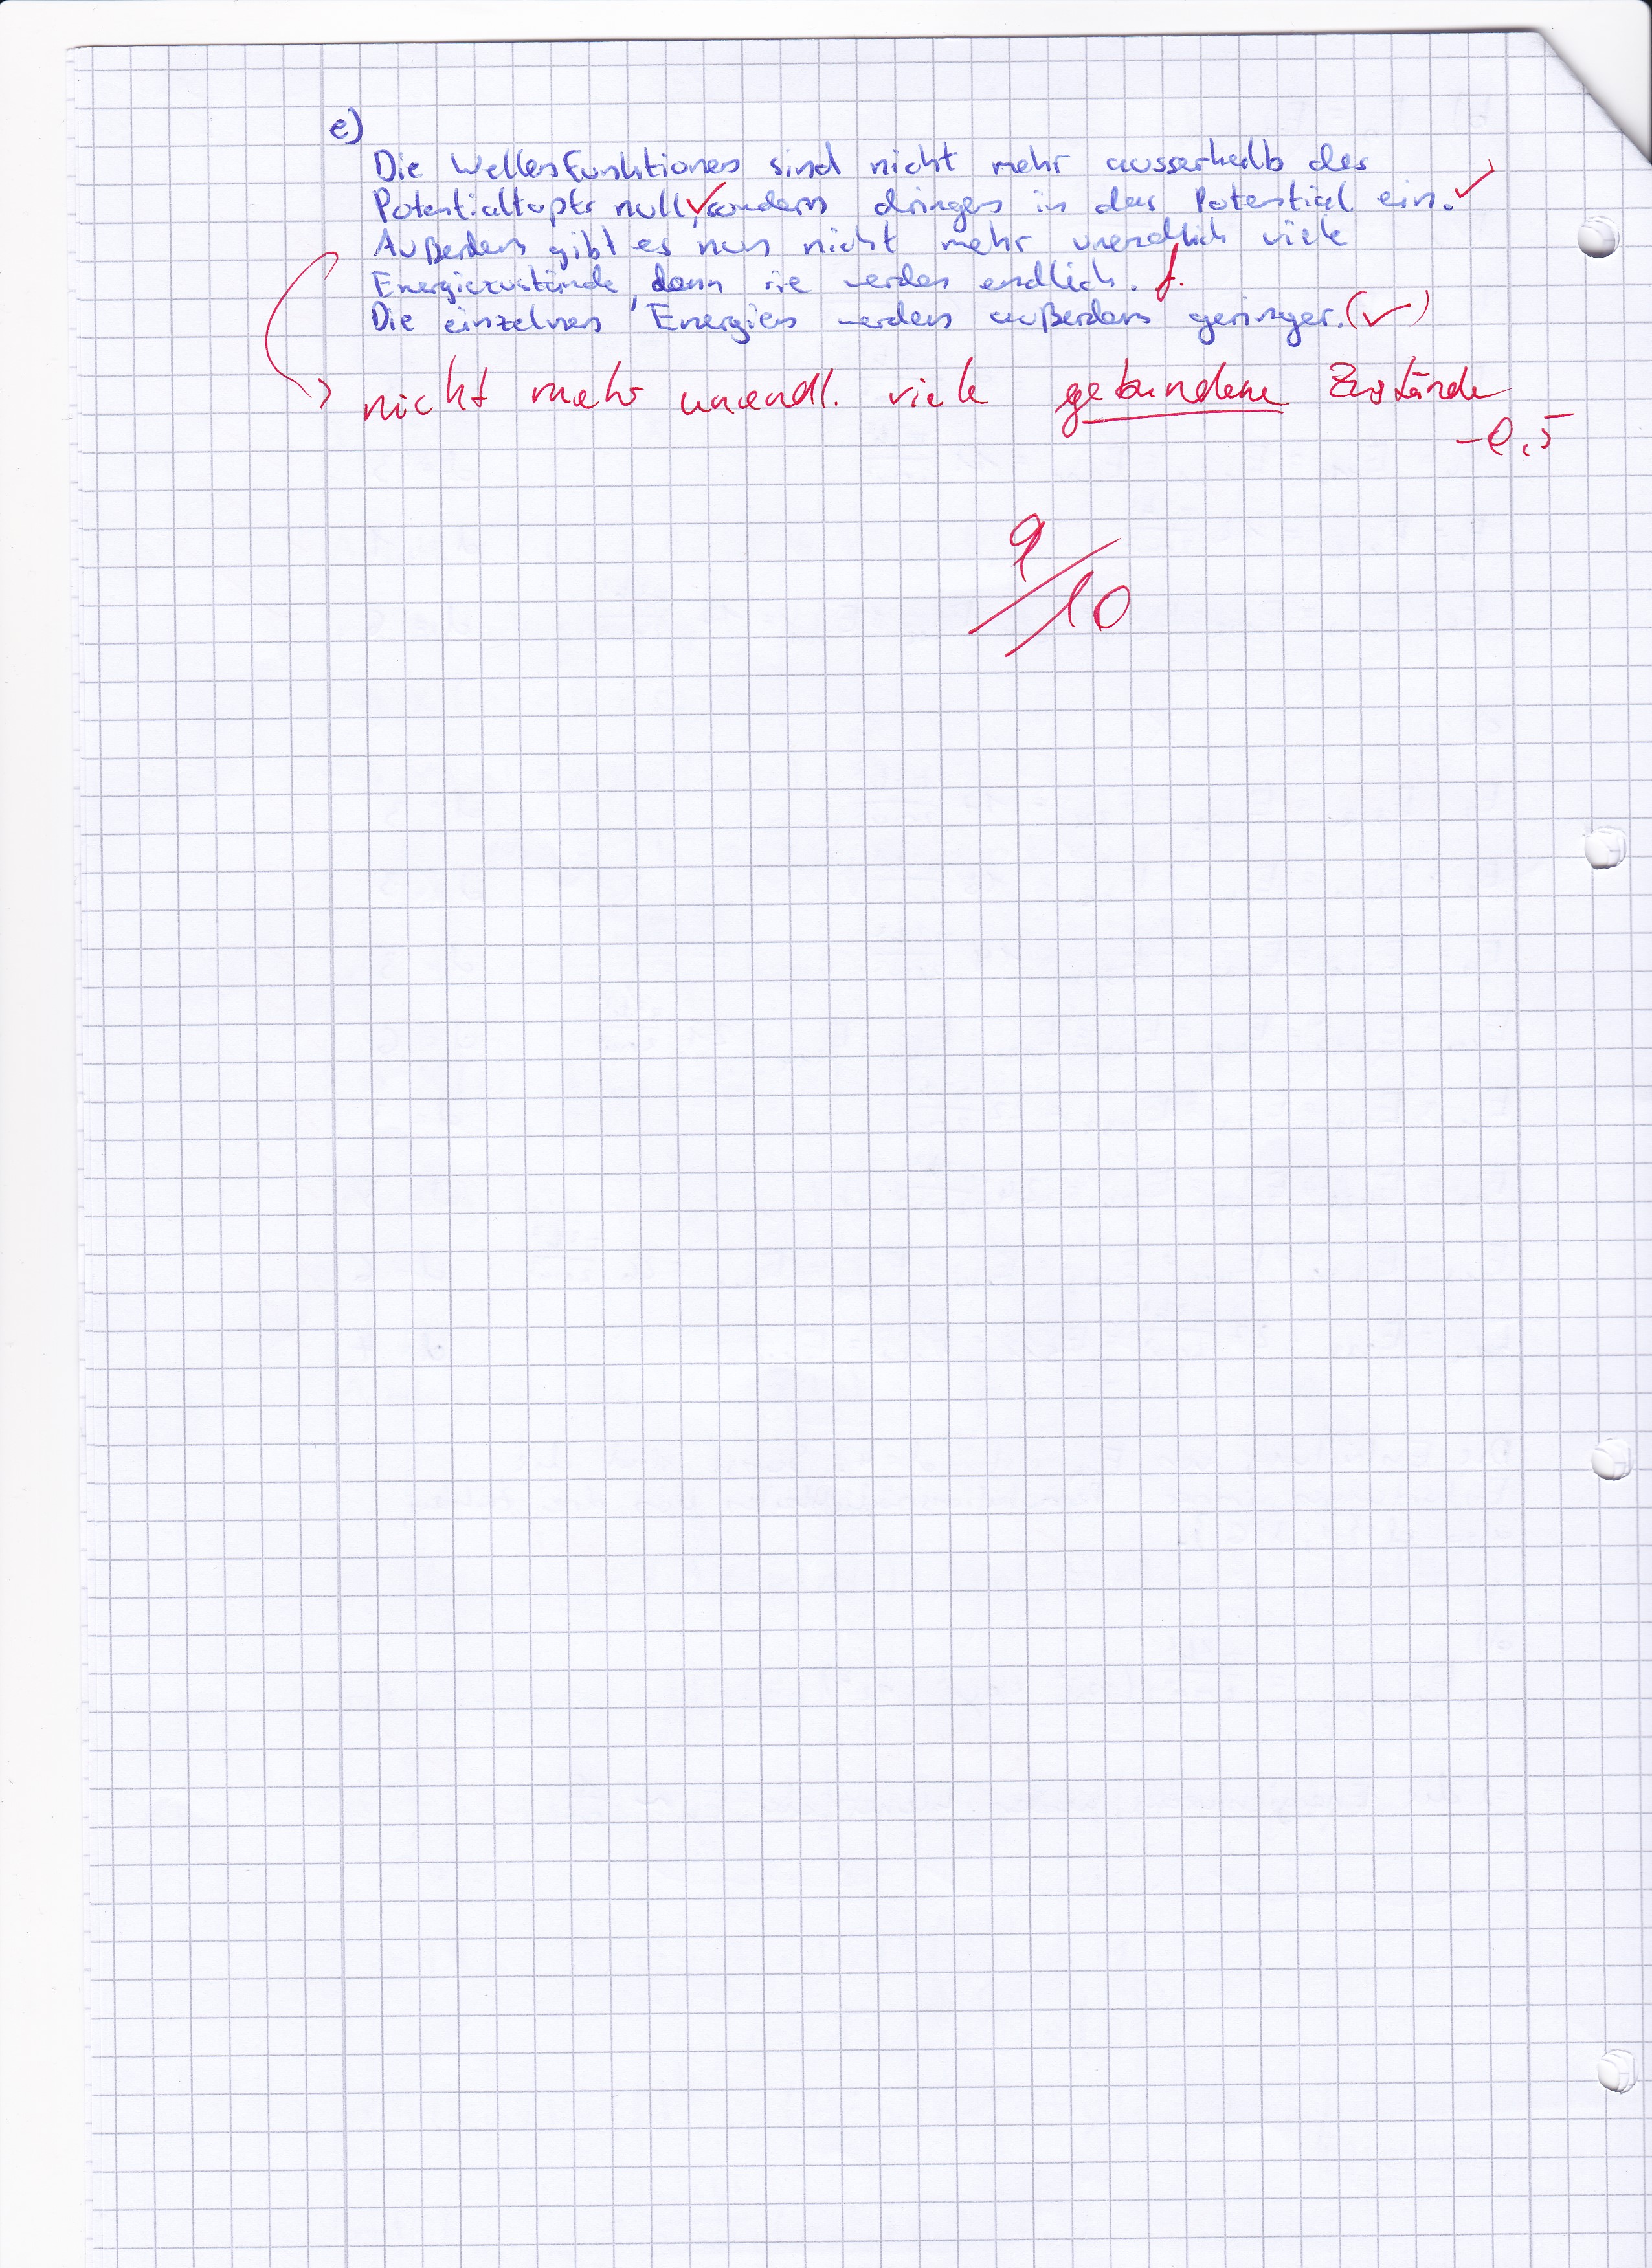 e)
Die Wellenfunktionen sind nicht mehr ausserhalb des
Potentialtopfs null, sondern dringen in das Potential ein.
Außerdem gibt es nun nicht mehr unendlich viele
Energiezustände, denn sie werden endlich. f.
Die einzelnen Energien werden außerdem geringer. (✓)
nicht mehr unendl. viele gebundene Zustände
-0,5
9/10